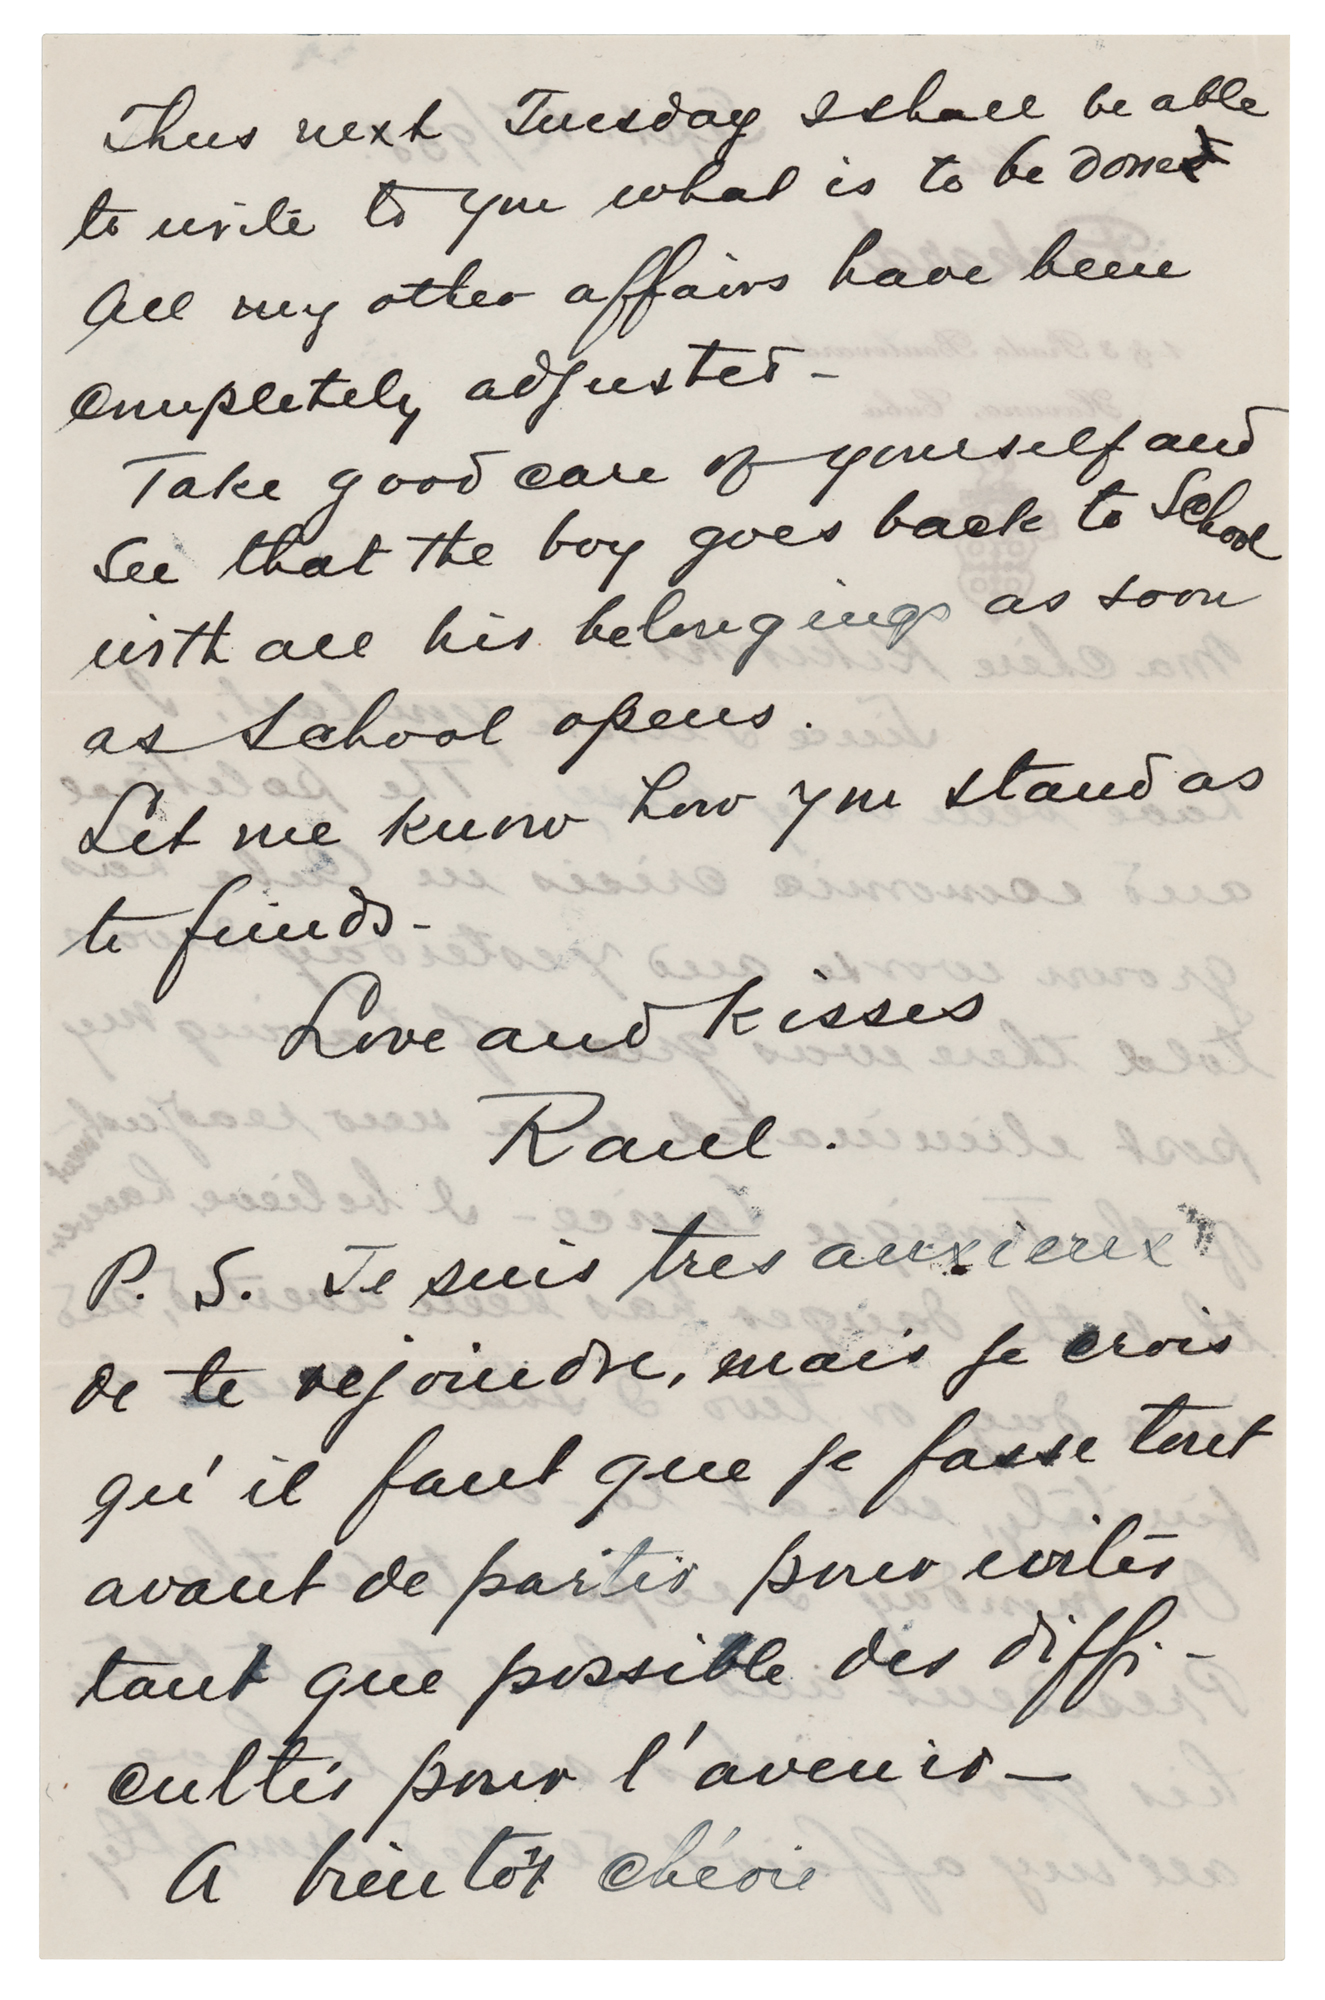 Thus next Tuesday I shall be able
to write to you what is to be done
All my other affairs have been
completely adjusted–
Take good care of yourself and
see that the boy goes back to School
with all his belongings as soon
as School opens.
Let me know how you stand as
to funds–
Love and kisses
Raul.
P. S. Je suis tres anxieux
de te rejoindre, mais je crois
qu'il faut que je fasse tout
avant de partir pour eviter
tant que possible des diffi-
cultés pour l'avenir–
A bientôt chérie